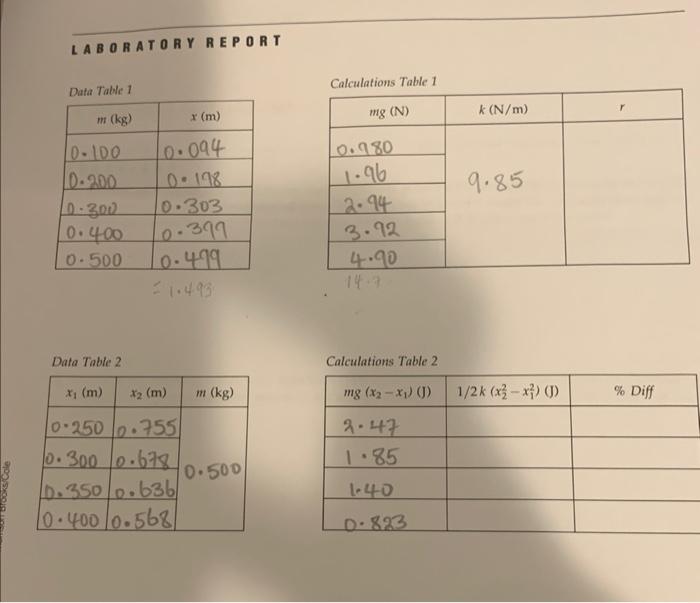 LABORATORY REPORT
Data Table 1
m (kg) x (m)
0.100 0.094
0.200 0.198
0.300 0.303
0.400 0.399
0.500 0.499
= 1.493
Calculations Table 1
mg (N) k (N/m) r
0.980
1.96
9.85
2.94
3.92
4.90
14.7
Data Table 2
x₁ (m) x₂ (m) m (kg)
0.250 0.755
0.300 0.678
0.500
0.350 0.636
0.400 0.568
Calculations Table 2
mg (x₂ – x₁) (J) 1/2 k (x₂² – x₁²) (J) % Diff
2.47
1.85
1.40
0.823
Brooks/Cole